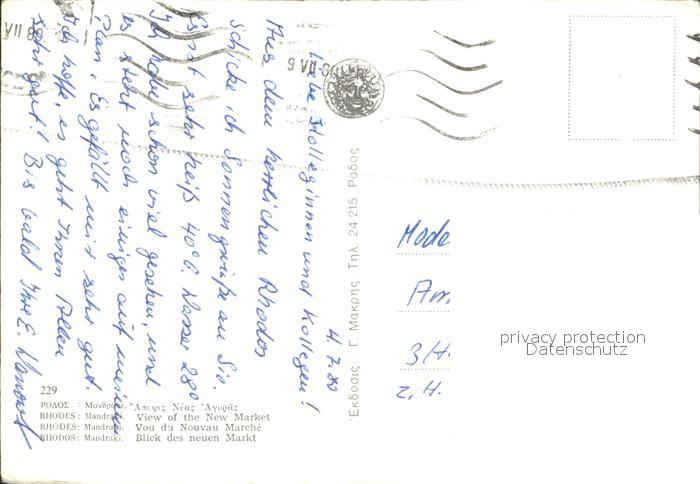 4.7.80
Liebe Kolleginnen und Kollegen!
Aus dem herrlichen Rhodos
schicke ich Sonnengrüße an Sie.
Es ist sehr heiß 40°C. Wasser 28°
Ich habe schon viel gesehen, und
es steht noch einiges auf meinem
Plan. Es gefällt mir sehr gut.
Ich hoffe, es geht Ihnen Allen
sehr gut! Bis bald Ihre E.
229
ΡΟΔΟΣ : Μανδράκι. Ἄποψις Νέας Ἀγορᾶς
RHODES: Mandraki. View of the New Market
RHODES: Mandraki. Vou du Nouvau Marché
RHODOS: Mandraki. Blick des neuen Markt
Ἔκδοσις Γ. Μακρης. Τηλ. 24 215 Ροδος
Mode
Am
3H.
z. H.
privacy protection
Datenschutz